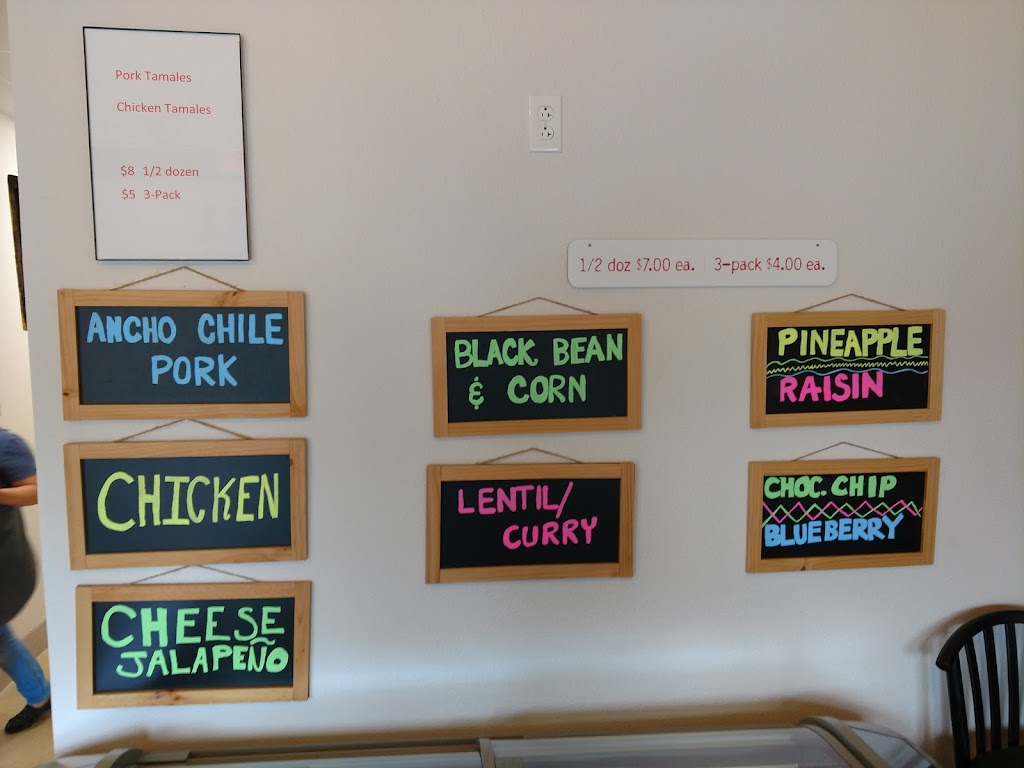 Pork Tamales
Chicken Tamales
$8 1/2 dozen
$5 3-Pack
1/2 doz $7.00 ea. 3-pack $4.00 ea.
ANCHO CHILE
PORK
CHICKEN
CHEESE
JALAPEÑO
BLACK BEAN
& CORN
LENTIL/
CURRY
PINEAPPLE
RAISIN
CHOC. CHIP
BLUEBERRY